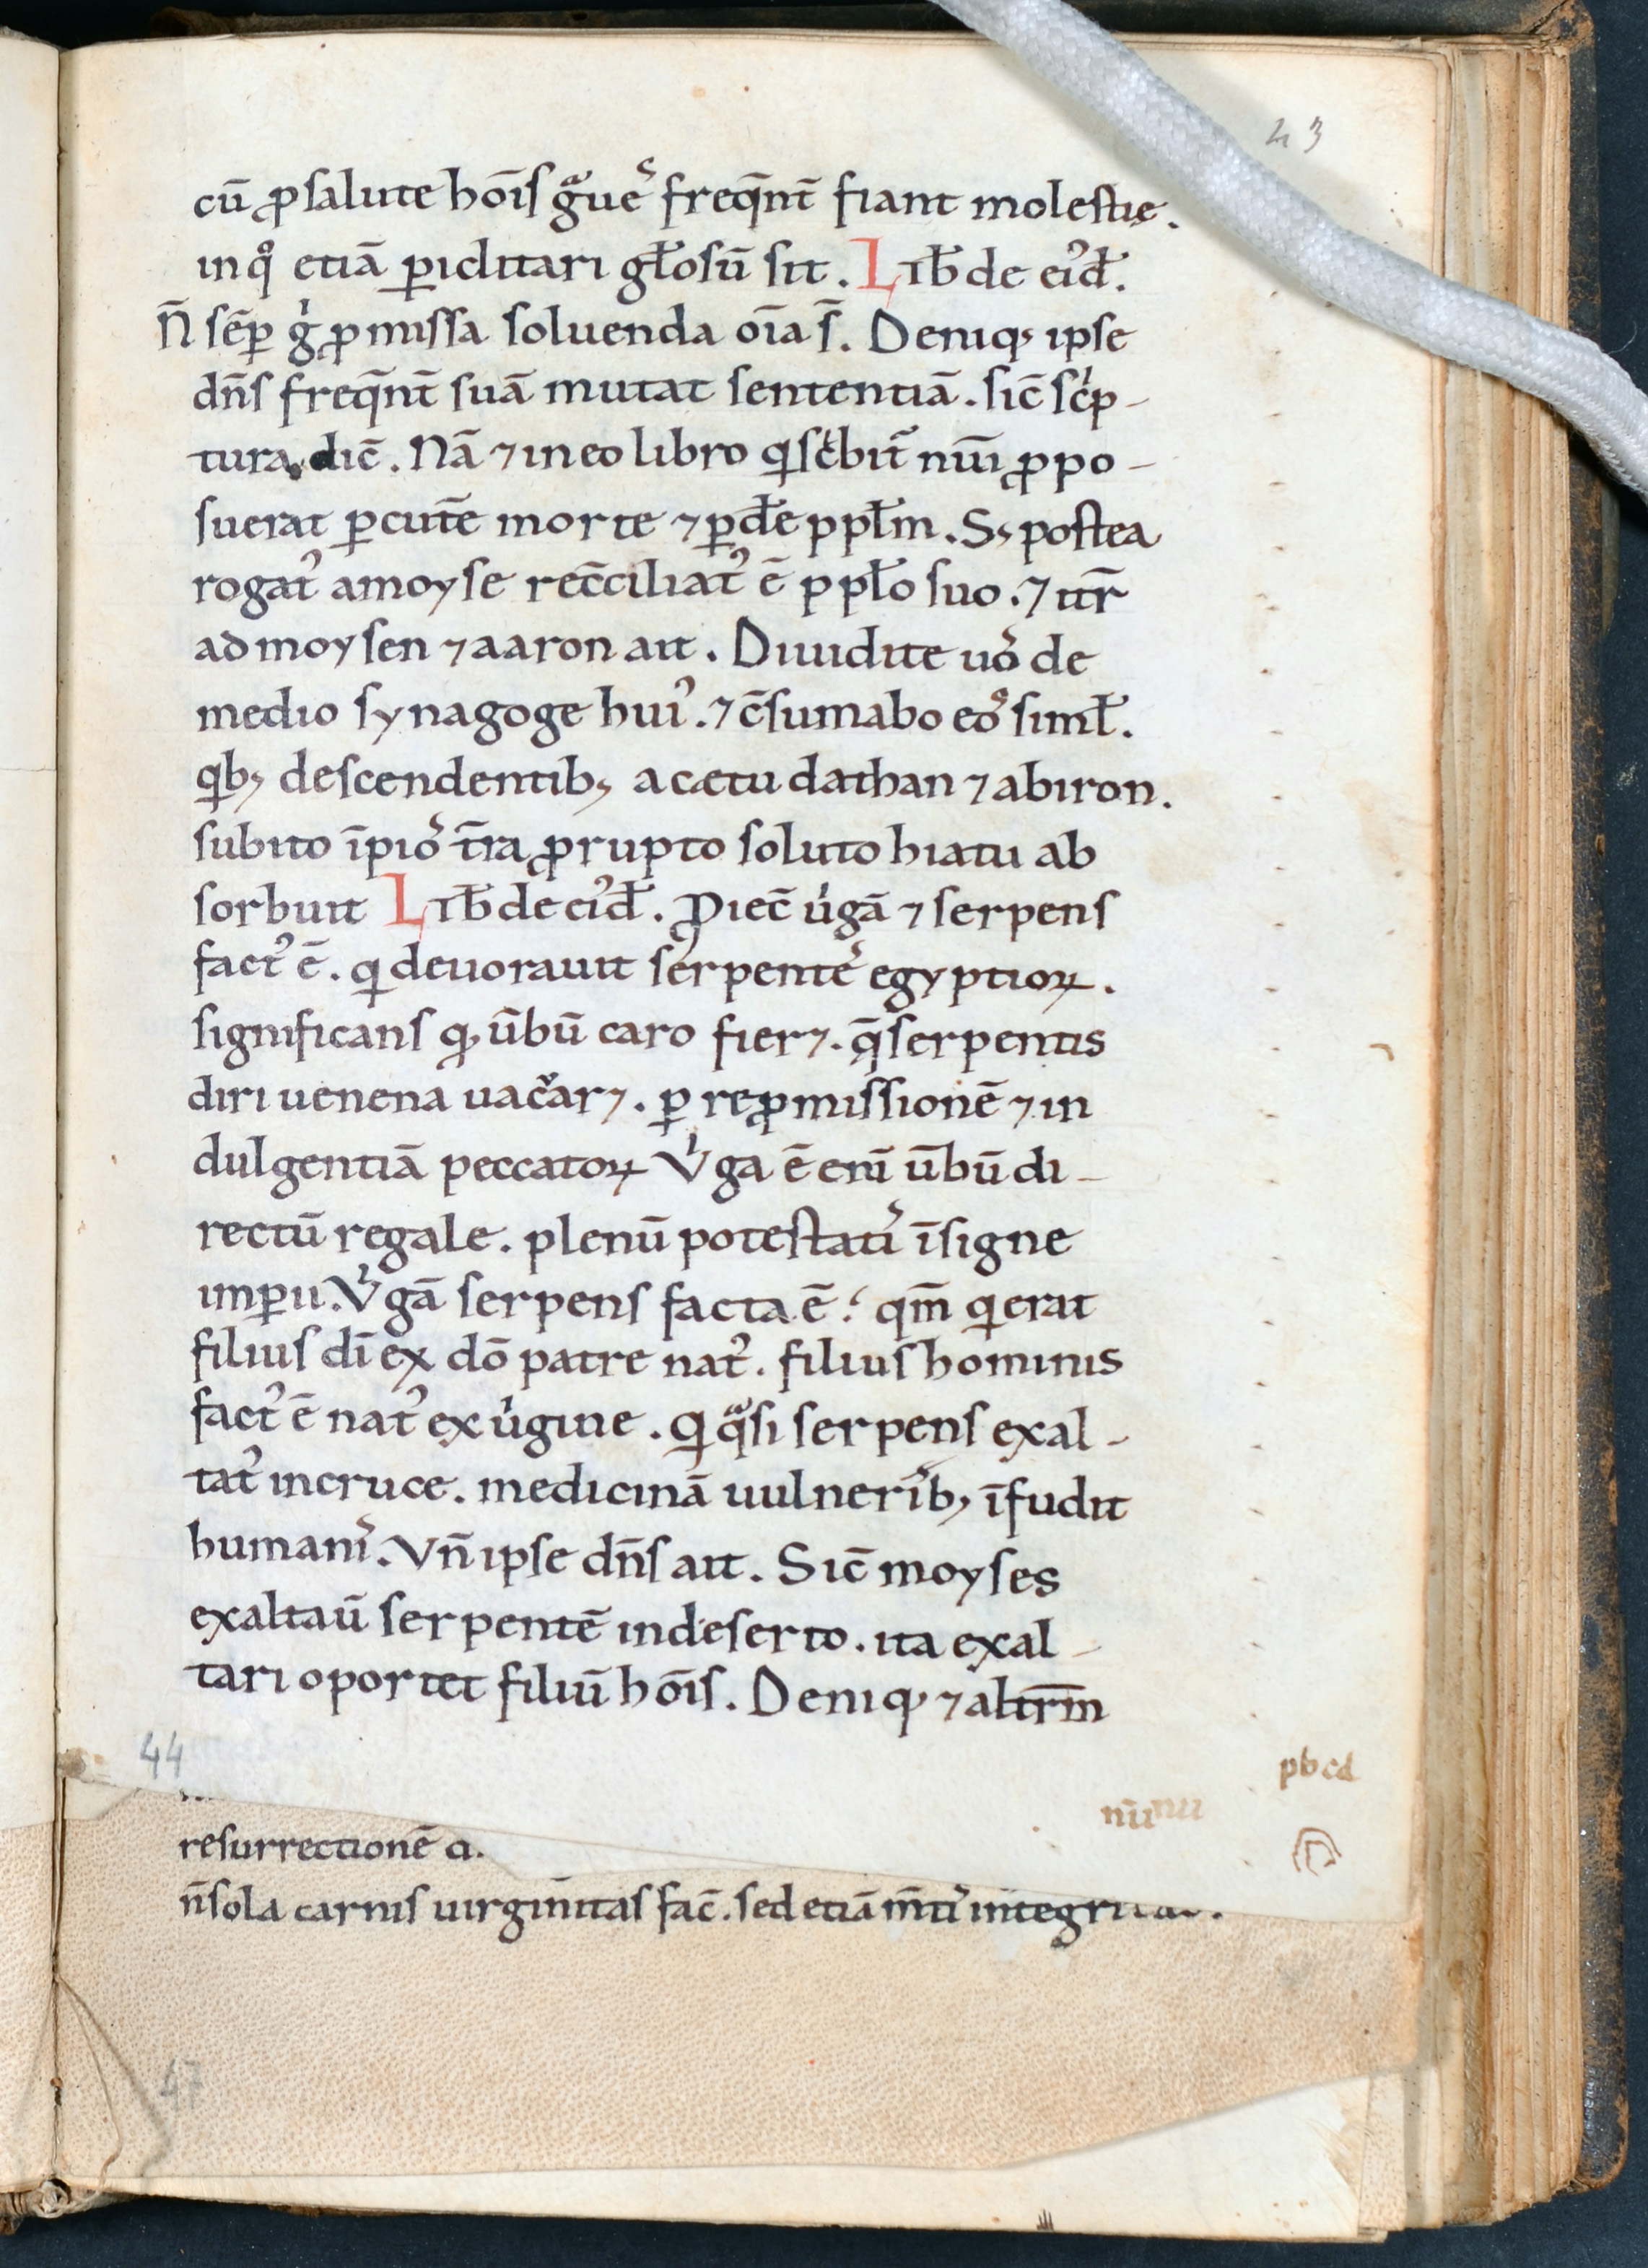 43
cū ꝓ salute hōıſ gͣueˢ freq̄nt̄ fiant moleſtię.
in qͦ etiā ꝑiclitari gl̄osū sit. Lib̄ de eiꝰd̄.
N̄ sēꝑ gͥ ꝓmiſſa soluenda oīa s̄. Deniqꝫ ipse
dn̄ſ freq̄nt̄ suā mutat sententiā. ſic̄ ſcͥp-
tura dic̄. Nā ⁊ in eo libro qͥ ſcͥbit᷑ nūi ꝓpo-
suerat ꝑcut̄e morte ⁊ ꝑd̄e ppl̄m. Sꝫ poſtea
rogatꝰ a moyse rec̄ciliatꝰ ē ppl̄o suo. ⁊ itr̄
ad moyſen ⁊ aaron ait. Diuidite uoˢ de
medio ſynagoge huiꝰ. ⁊ c̄ſumabo eoˢ siml̄.
qͥbꝫ deſcendentibꝫ a cætu dathan ⁊ abiron.
subito īpioˢ t̄ra ꝓrupto soluto hiatu ab
sorbuit Lib̄ de eiꝰd̄. Ꝓiec̄ uͥgā ⁊ serpens
factꝰ ē. qͥ deuorauit serpenteˢ egyptioꝝ.
significanſ qꝫ ūbū caro fier⁊. q̄ serpentis
diri uenena uacͣar⁊. ꝑ reꝓmiſſionē ⁊ in
dulgentiā peccatoꝝ Vͥga ē enī ūbū di-
rectū regale. plenū poteſtatiˢ īſigne
imꝑii. Vͥgā serpenſ facta ē. qm̄ qͥ erat
filiuſ dī ex dō patre natꝰ. filiuſ hominis
factꝰ ē natꝰ ex uͥgine. Qͥ qͣſi serpens exal-
tatꝰ in cruce. medicinā uulneribꝫ īfudit
humaniˢ. Vn̄ ipse dn̄ſ ait. Sic̄ moyſes
exaltaū serpentē in deſerto. ita exal-
tari oportet filiū hōıſ. Deniqꝫ ⁊ altr̄m
44
pbcd
nūi
resurrectionē a.
n̄ sola carniſ uirginitaſ fac̄. sed etiā m̄tiˢ
47